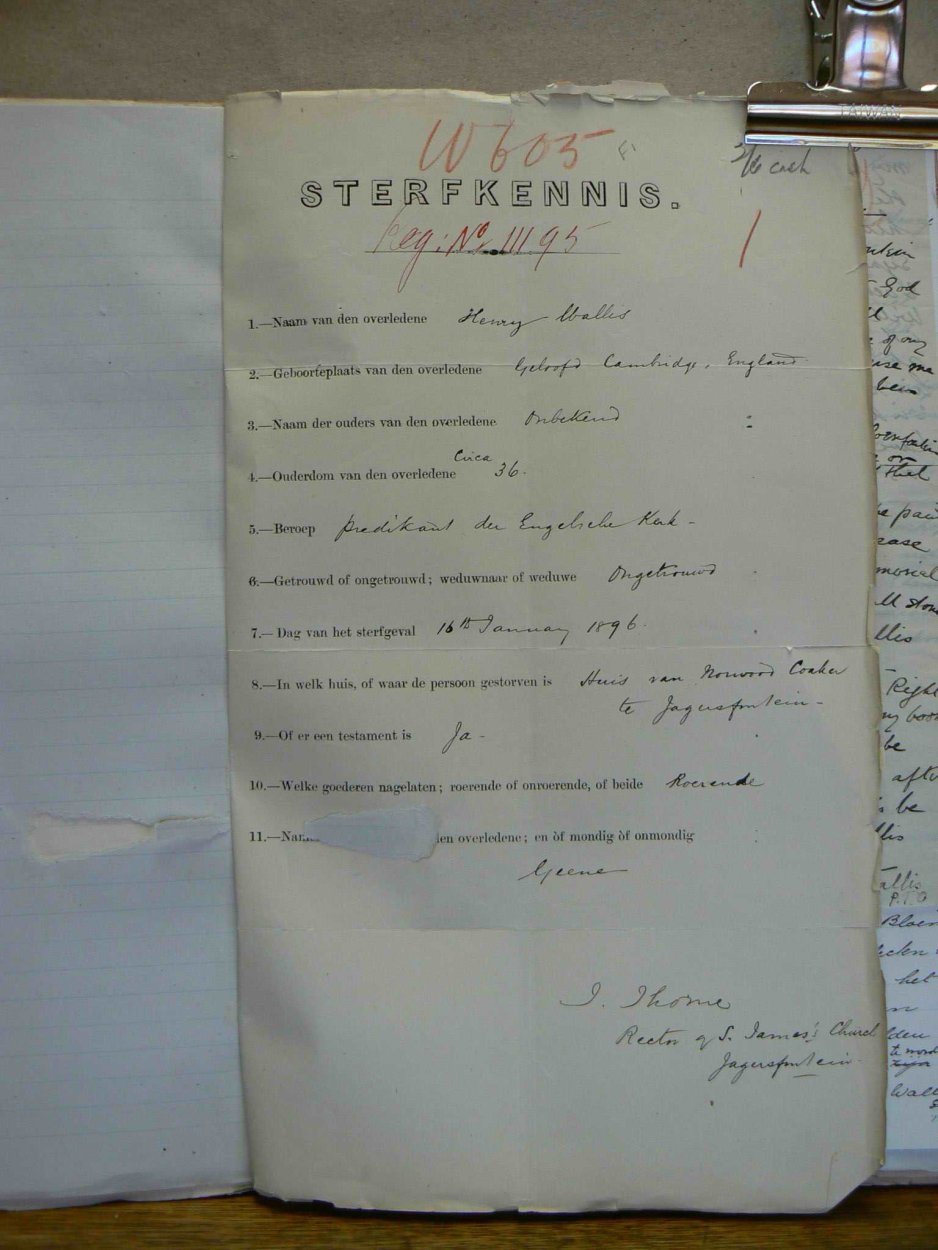 TAIWAN
W605
2/6 cash
STERFKENNIS.
Reg: No. 11195
1
1.—Naam van den overledene Henry Wallis
2.—Geboorteplaats van den overledene Geloofd Cambridge, England
3.—Naam der ouders van den overledene Onbekend
4.—Ouderdom van den overledene Circa 36.
5.—Beroep Predikant der Engelsche Kerk -
6.—Getrouwd of ongetrouwd; weduwnaar of weduwe Ongetrouwd
7.— Dag van het sterfgeval 16th January 1896.
8.—In welk huis, of waar de persoon gestorven is Huis van Norwood Coaker
te Jagersfontein -
9.—Of er een testament is Ja -
10.—Welke goederen nagelaten; roerende of onroerende, of beide Roerende
11.—Na den overledene; en òf mondig òf onmondig
Geene
J. Thorne
Rector of S. James's Church
Jagersfontein.
God
of my
be
pai
ease
llis
Right
my book
be
afte
be
llis
allis
P.T.O
Bloem
het
Wall